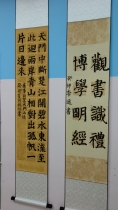 觀書識禮
博學明經
天門中斷楚江開碧水東流至
此迴兩岸青山相對出孤帆一
片日邊來